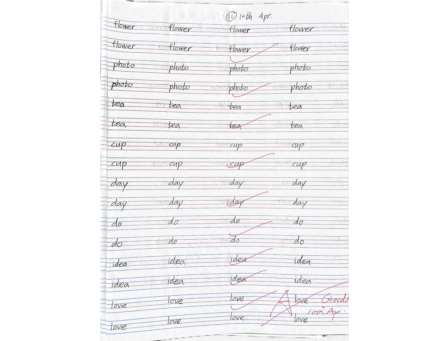 ⑪ 10th Apr
flower flower flower flower
flower flower flower flower
photo photo photo photo
photo photo photo photo
tea tea tea tea
tea tea tea tea
cup cup cup cup
cup cup cup cup
day day day day
day day day day
do do do do
do do do do
idea idea idea idea
idea idea idea idea
love love love love
love love love love
A Good!
10th Apr